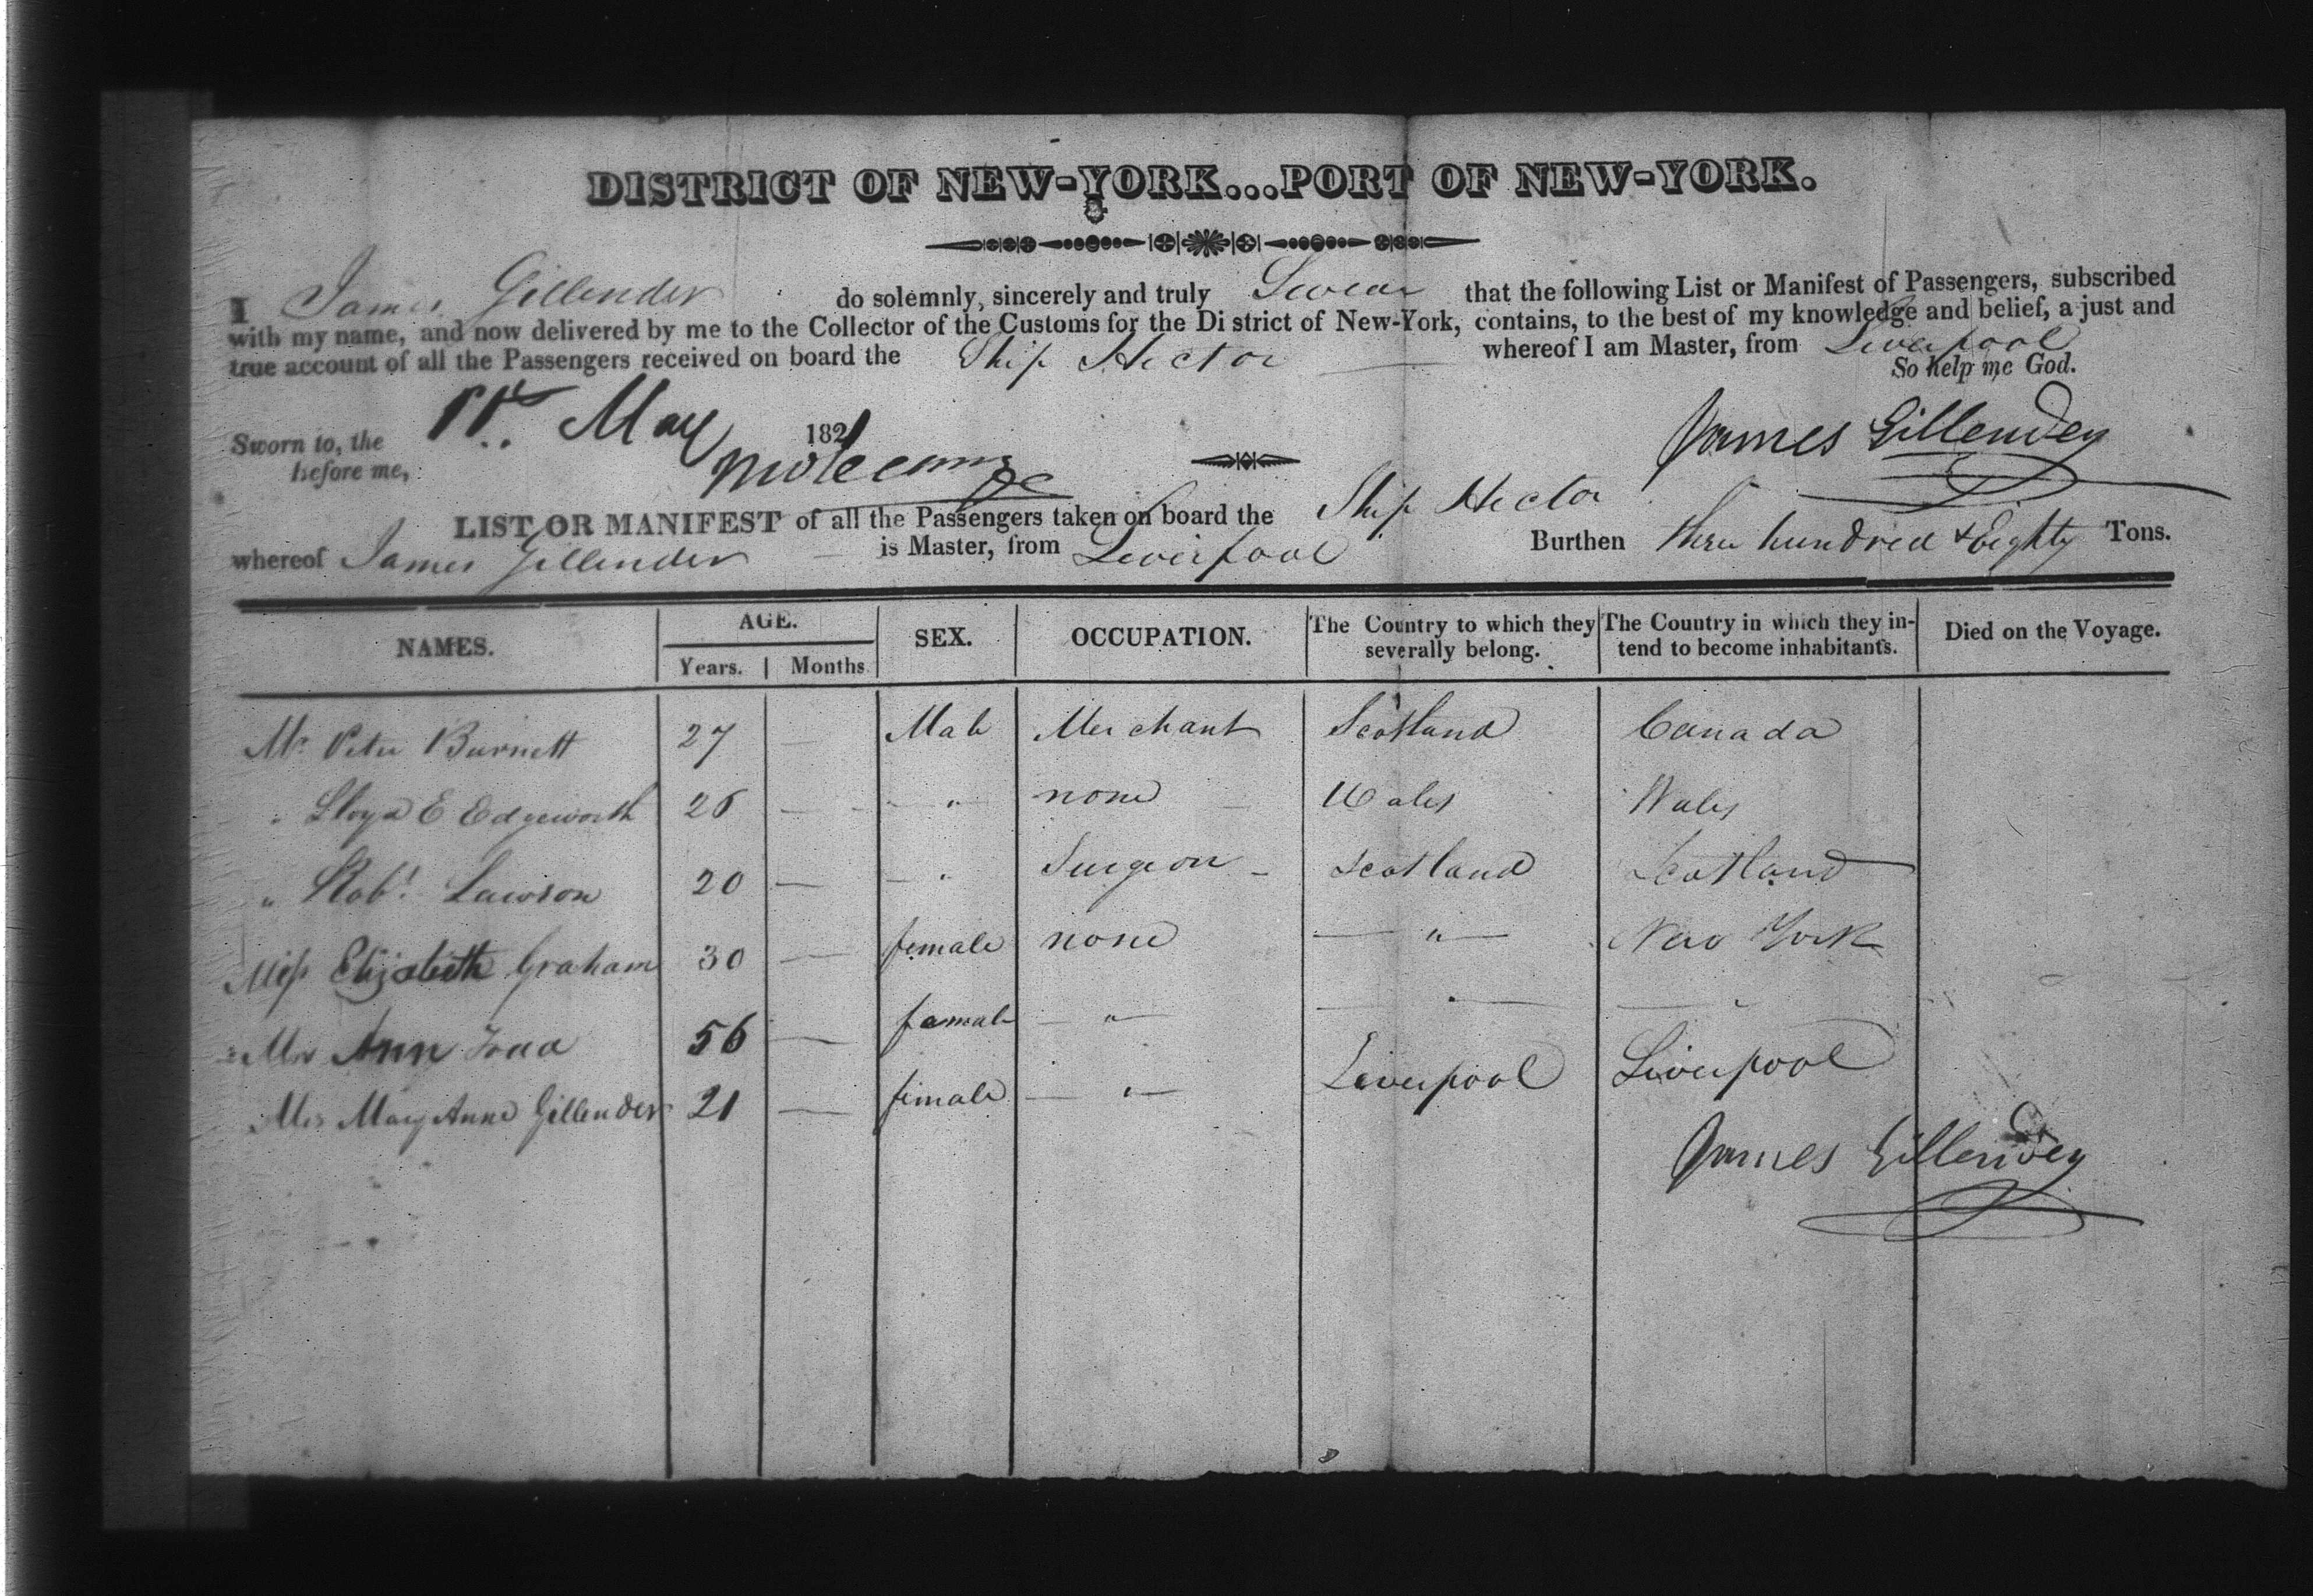 DISTRICT OF NEW-YORK...PORT OF NEW-YORK.
I James Gillender do solemnly, sincerely and truly Swear that the following List or Manifest of Passengers, subscribed
with my name, and now delivered by me to the Collector of the Customs for the Di strict of New-York, contains, to the best of my knowledge and belief, a just and
true account of all the Passengers received on board the Ship Hector whereof I am Master, from Liverpool
So help me God.
Sworn to, the May 1821
before me,
James Gillender
LIST OR MANIFEST of all the Passengers taken on board the Ship Hector
whereof James Gillender is Master, from Liverpool Burthen three hundred & Eighty Tons.
NAMES. AGE. SEX. OCCUPATION. The Country to which they severally belong. The Country in which they in-tend to become inhabitants. Died on the Voyage.
Years. Months.
Mr Peter Burnett 27 — Male Merchant Scotland Canada
" Lloyd E Edgeworth 26 — " none Wales Wales
" Robt. Lawson 20 — " Surgeon Scotland Scotland
Miss Elizabeth Graham 30 — female none " New York
Mrs Ann 56 — female " " "
Mrs Mary Anne Gillender 21 — female " Liverpool Liverpool
James Gillender